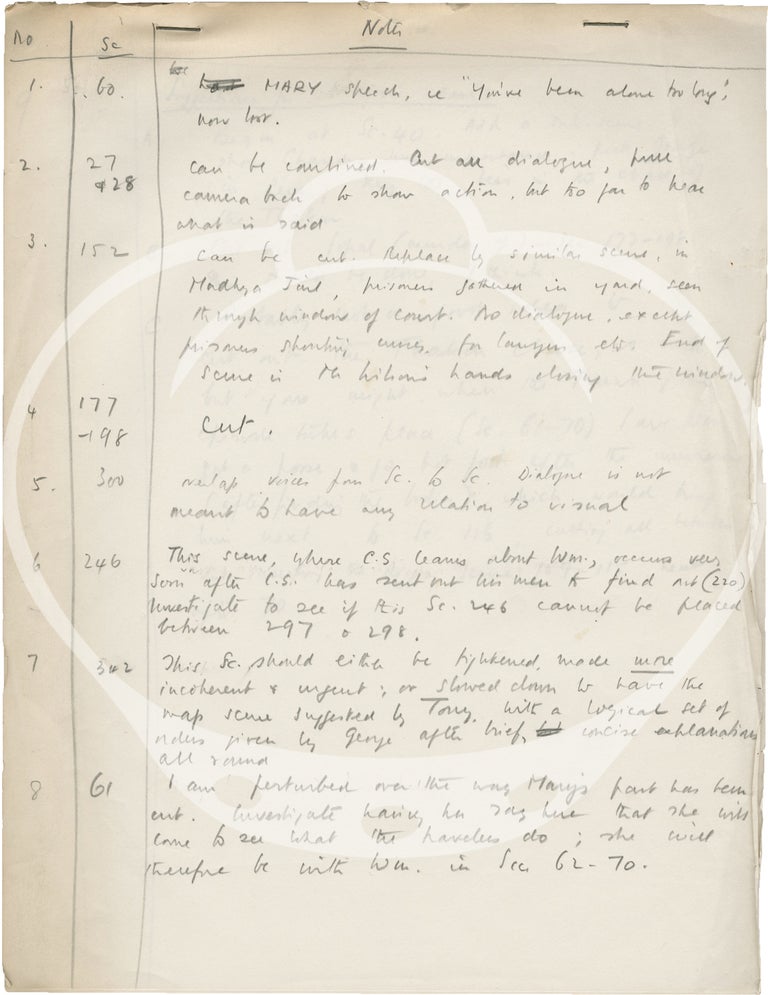 No Sc Notes
1. 60. MARY speech, ie "You've been alone too long";
now lost.
2. 27 can be combined. Cut all dialogue, pull
+28 camera back to show action, but too far to hear
what is said
3. 152 can be cut. Replace by similar scene, in
Madhya Jail, prisoners gathered in yard, seen
through window of court. No dialogue, except
prisoners shouting curses for lawyers etc. End of
scene is Mr Wilson's hands closing the window.
4 177
-198 Cut.
5. 300 overlap voices from Sc. to Sc. Dialogue is not
meant to have any relation to visual
6 246 This scene, where C.S. learns about Wm., occurs very
soon after C.S. has sent out his men to find out (220)
Investigate to see if this Sc. 246 cannot be placed
between 297 & 298.
7 342 This Sc. should either be tightened, made more
incoherent & urgent; or slowed down to have the
map scene suggested by Tony, with a logical set of
orders given by George after brief, concise explanations
all round
8 61 I am perturbed over the way Mary's part has been
cut. Investigate having her say here that she will
come to see what the travelers do; she will
therefore be with Wm. in Scs 62-70.